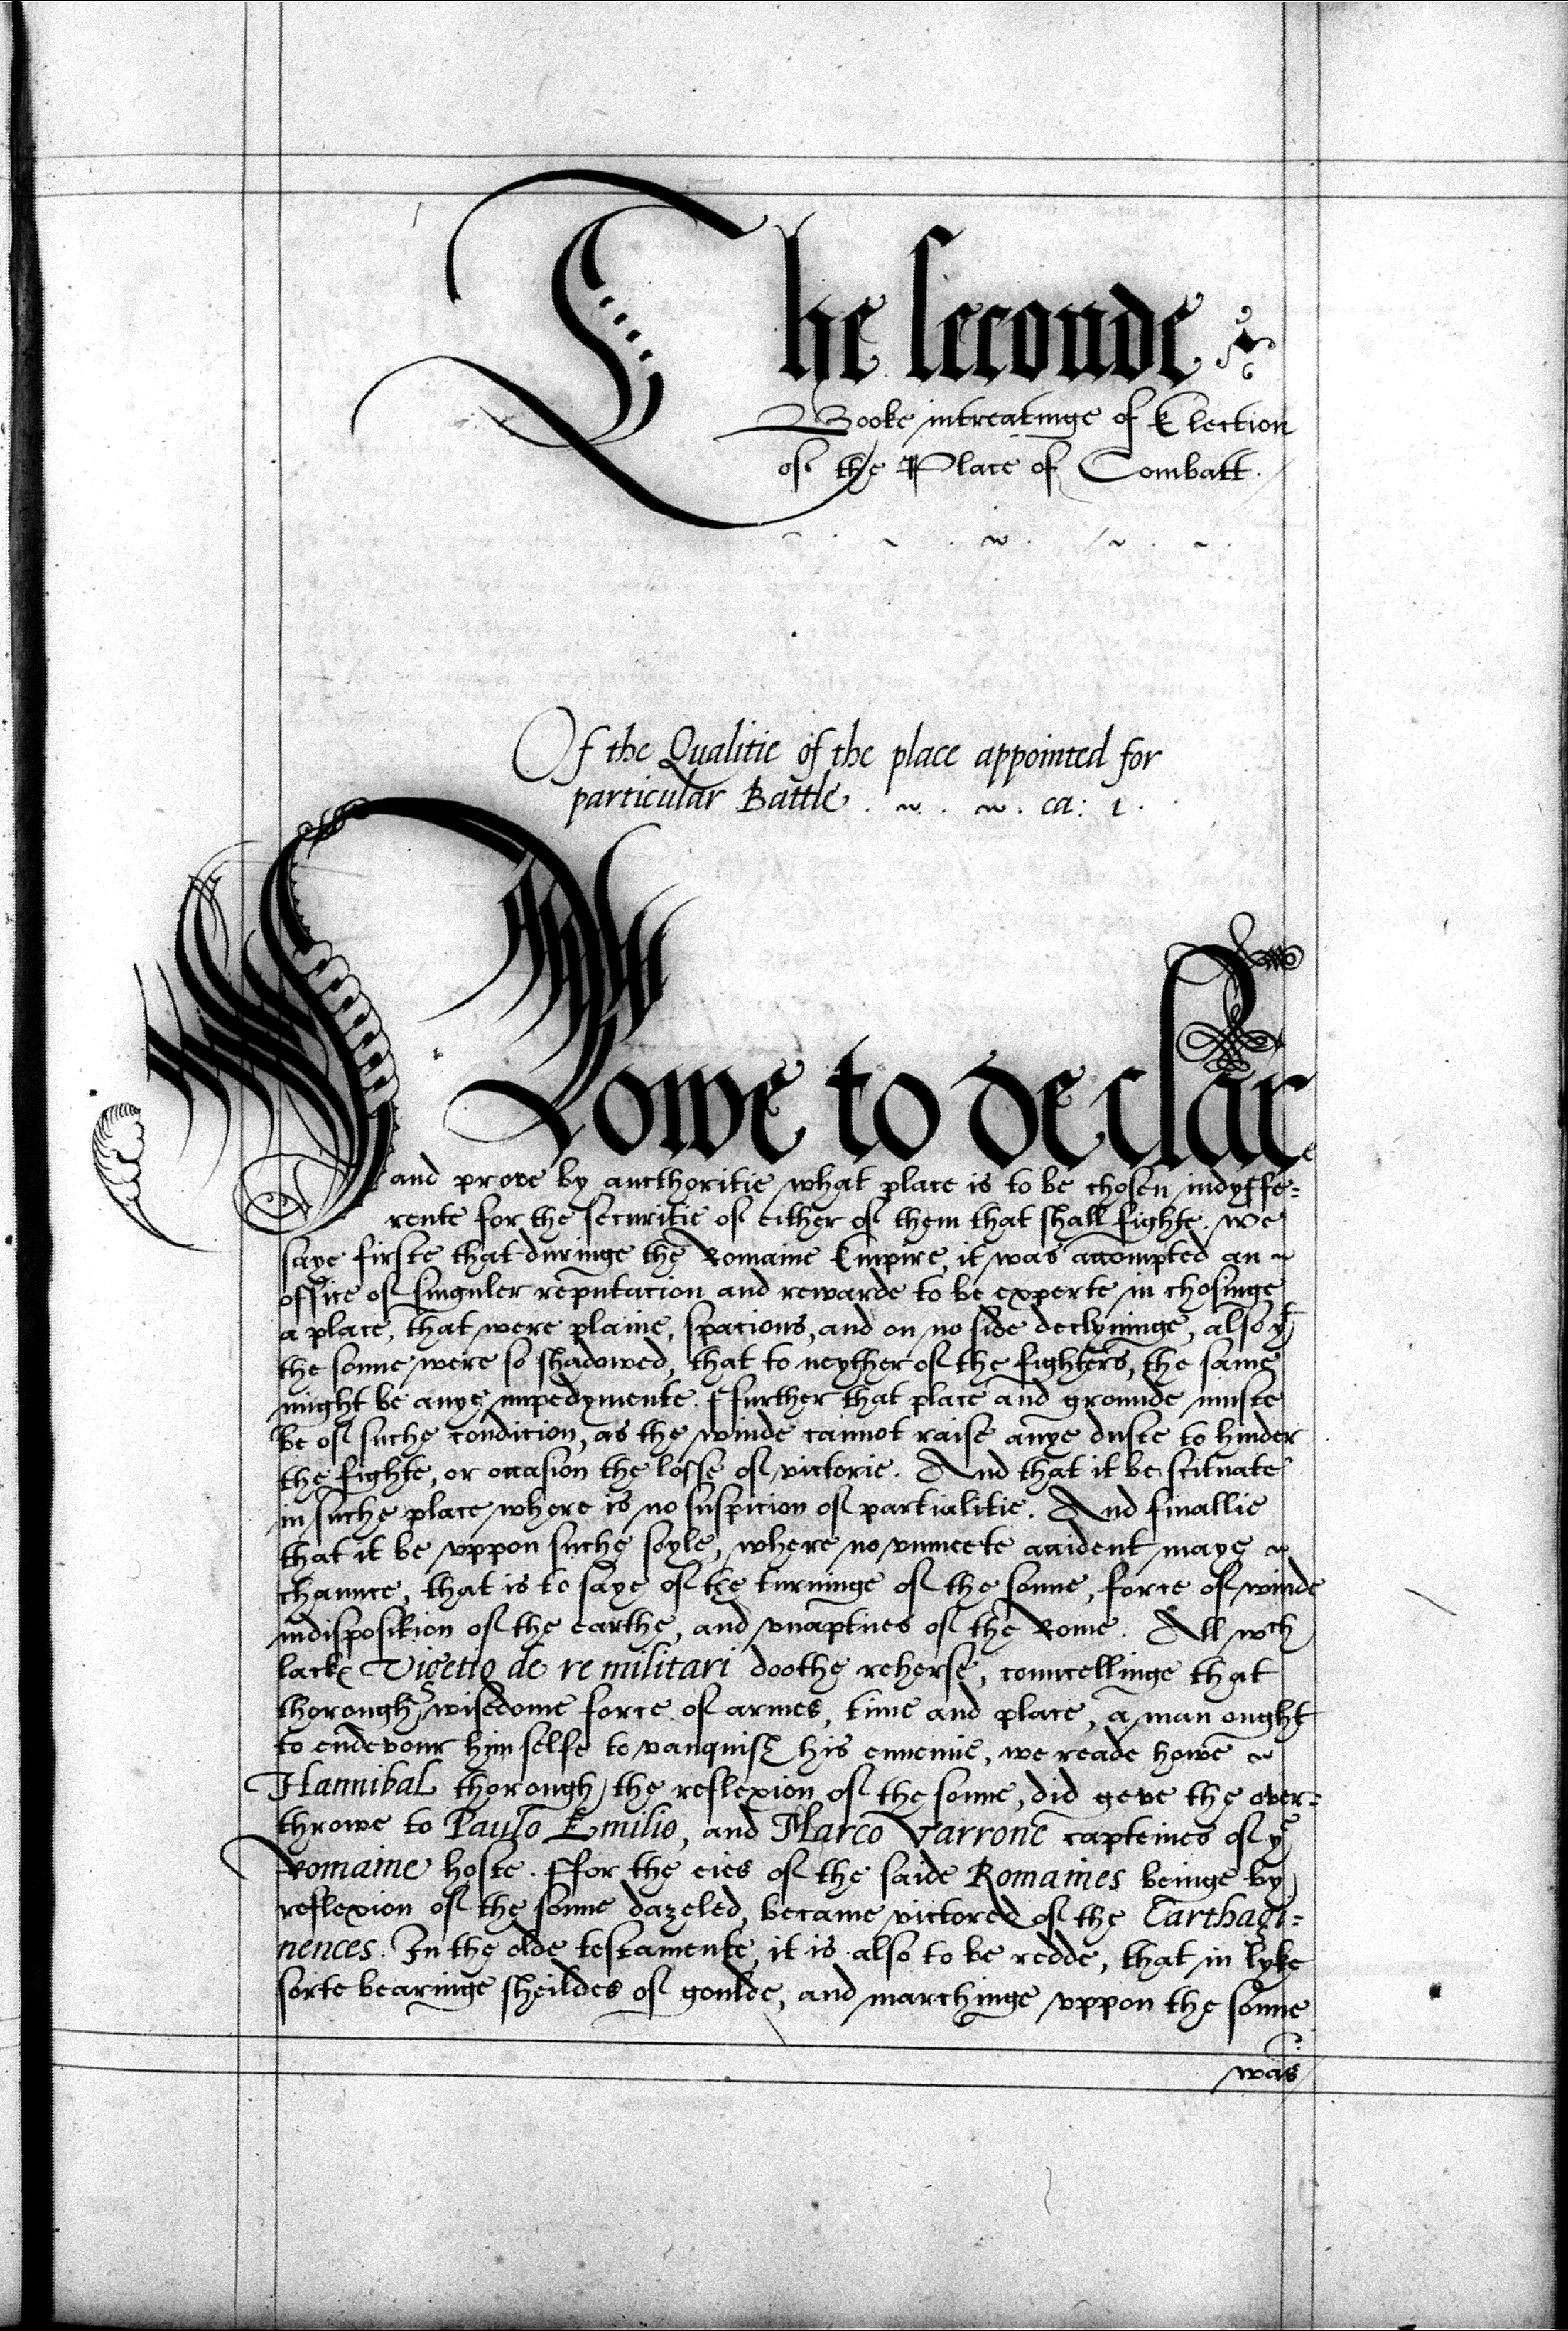 The seconde
Booke intreatinge of Election
of the Place of Combatt.
Of the Qualitie of the place appointed for
particular Battle. ca: 1.
Nowe to declare
and prove by aucthoritie what place is to be chosen indyffe=
rente for the securitie of either of them that shall fighte. we
saye firste that duringe the Romaine Empire, it was accompted an
office of singuler reputacion and rewarde to be experte in chosinge
a place, that were plaine, spacious, and on no side declyninge, also yt
the sonne were so shadowed, that to neyther of the fighters, the same
might be anye impedymente. ffurther that place and grounde muste
be of suche condicion, as the winde cannot raise anye duste to hinder
the fighte, or occasion the losse of victorie. And that it be scituate
in suche place where is no suspicion of partialitie. And finallie
that it be uppon suche soyle, where no unmeete accident maye
chaunce, that is to saye of the turninge of the sonne, force of winde
indisposition of the earthe, and unaptnes of the Rome. All wch
lackes Vigetio de re militari doothe reherse, councellinge that
thorough wisedome force of armes, time and place, a man ought
to endevour him selfe to vanquish his ennemie, we reade howe
Hannibal thorough the reflexion of the sonne, did geve the over=
throwe to Paulo Emilio, and Marco Varrone capteines of ye
Romaine hoste. ffor the eies of the saide Romaines beinge by
reflexion of the sonne dazeled, became victored of the Carthagi=
nences. In the olde testamente, it is also to be redde, that in lyke
sorte bearinge sheildes of goulde, and marchinge uppon the sonne
was